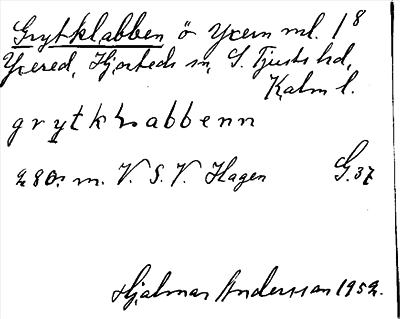 Grytklabben ö Yxern ml. 1⁸
Yxered, Hjorteds sn, S. Tjusts hd,
Kalm l.
grytklabbenn
280 m. V. S. V. Hagen G. 37
Hjalmar Andersson 1952.